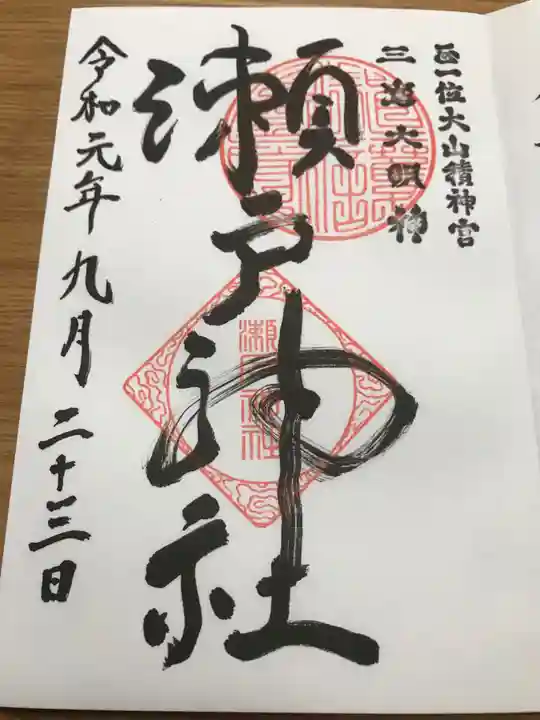 正一位大山積神宮
三嶋大明神
瀬戸神社
瀬戸神社
令和元年九月二十三日